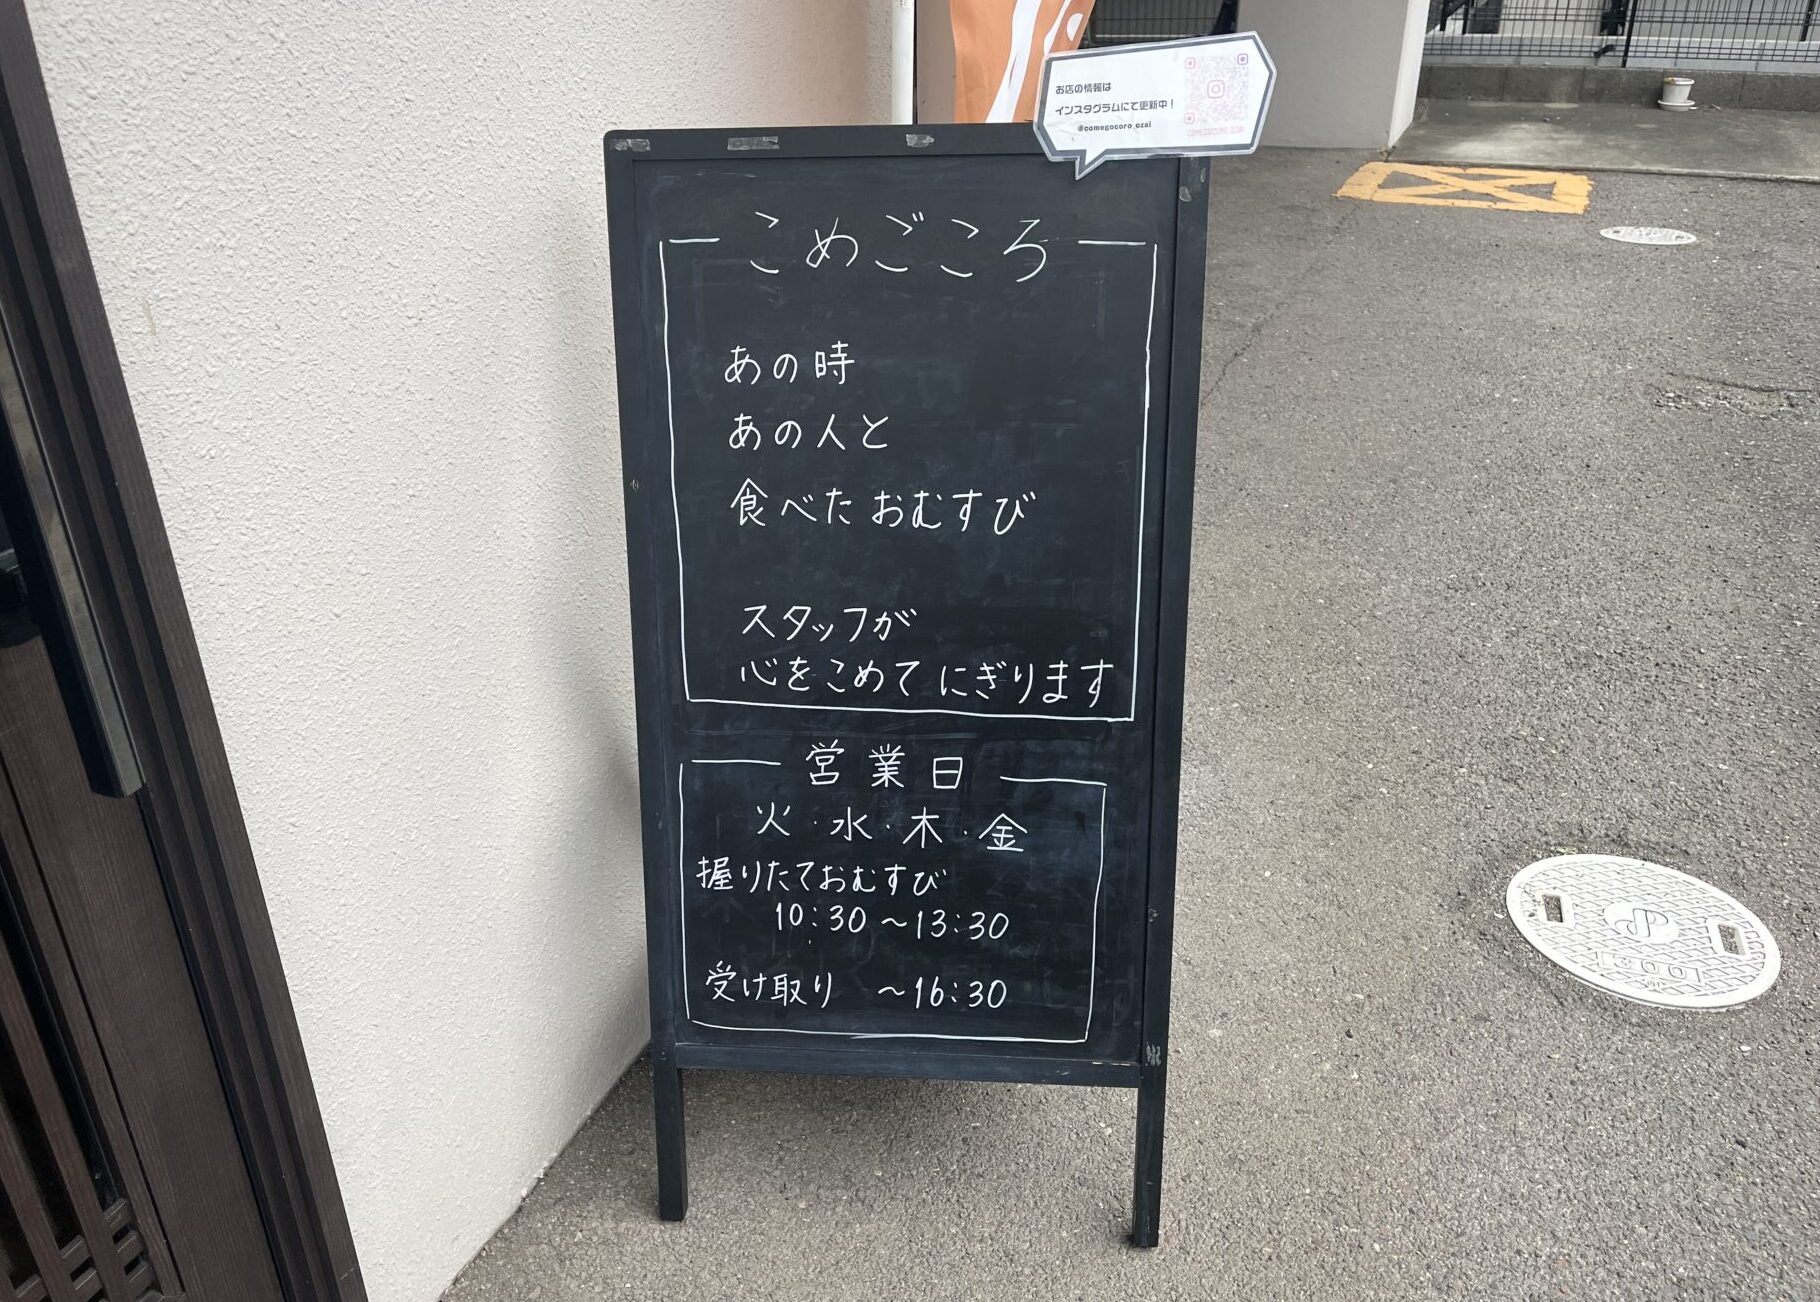 お店の情報は
インスタグラムにて更新中！
@comegocoro_ozai
COMEGOCORO_OZAI
こめごころ
あの時
あの人と
食べたおむすび
スタッフが
心をこめてにぎります
営業日
火・水・木・金
握りたておむすび
10:30～13:30
受け取り ～16:30